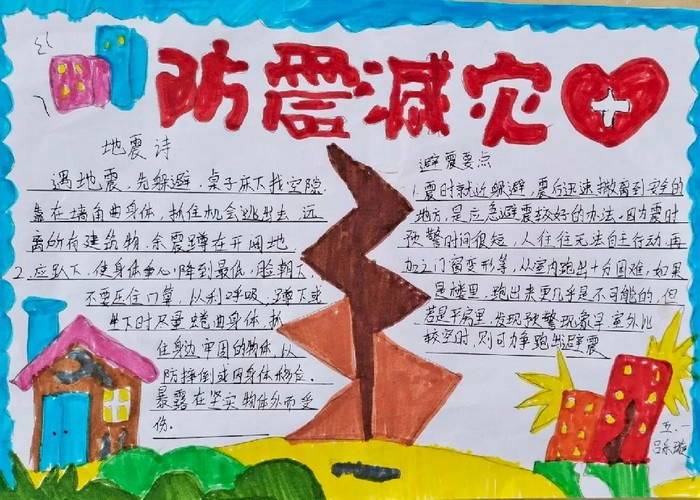 防震减灾
地震诗
遇地震,先躲避,桌子床下找空隙
靠在墙角曲身体,抓住机会逃出去,远
离所有建筑物,余震蹲在开阔地.
2.应趴下,使身体重心降到最低,脸朝下,
不要压住口鼻,以利呼吸;蹲下或
坐下时尽量蜷曲身体,抓
住身边牢固的物体,以
防摔倒或因身体移位,
暴露在坚实物体外而受
伤.
避震要点
1.震时就近躲避,震后迅速撤离到安全的
地方,是应急避震较好的办法.因为震时
预警时间很短,人往往无法自主行动,再
加之门窗变形等,从室内跑出十分困难,如果
是楼里,跑出来更几乎是不可能的,但
若是平房里,发现预警现象早室外比
较空时,则可力争跑出避震
五.一